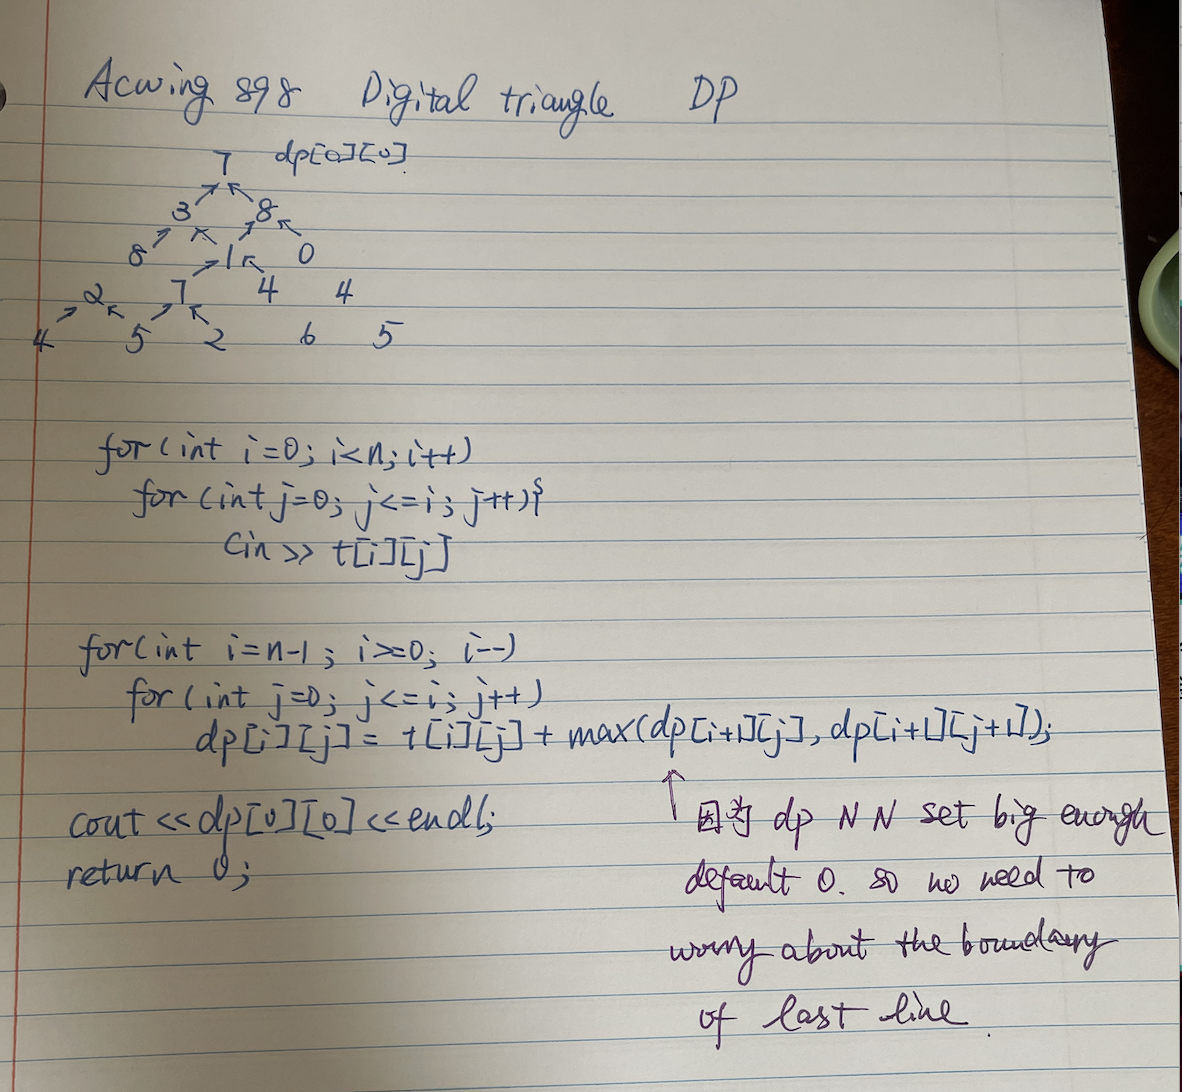 Acwing 898 Digital triangle DP
7 dp[0][0].
3 8
8 1 0
2 7 4 4
4 5 2 6 5
for(int i=0; i<n; i++)
for(int j=0; j<=i; j++){
cin >> t[i][j]
for(int i=n-1; i>=0; i--)
for(int j=0; j<=i; j++)
dp[i][j] = t[i][j] + max(dp[i+1][j], dp[i+1][j+1]);
cout << dp[0][0] << endl;
return 0;
↑ 因为 dp N N set big enough
default 0. so no need to
worry about the boundary
of last line.